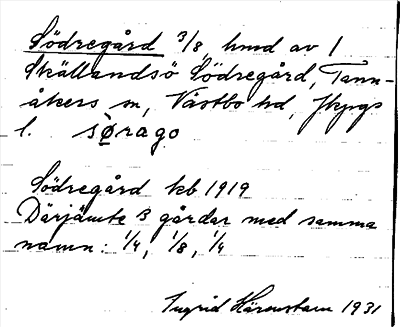 Södregård 3/8 hmd av 1
Skällandsö Södregård, Tann-
åkers sn, Västbo hd, Jkpgs
l. sørago
Södregård kb 1919
Därjämte 3 gårdar med samma
namn: 1/4, 1/8, 1/4
Ingrid Härenstam 1931